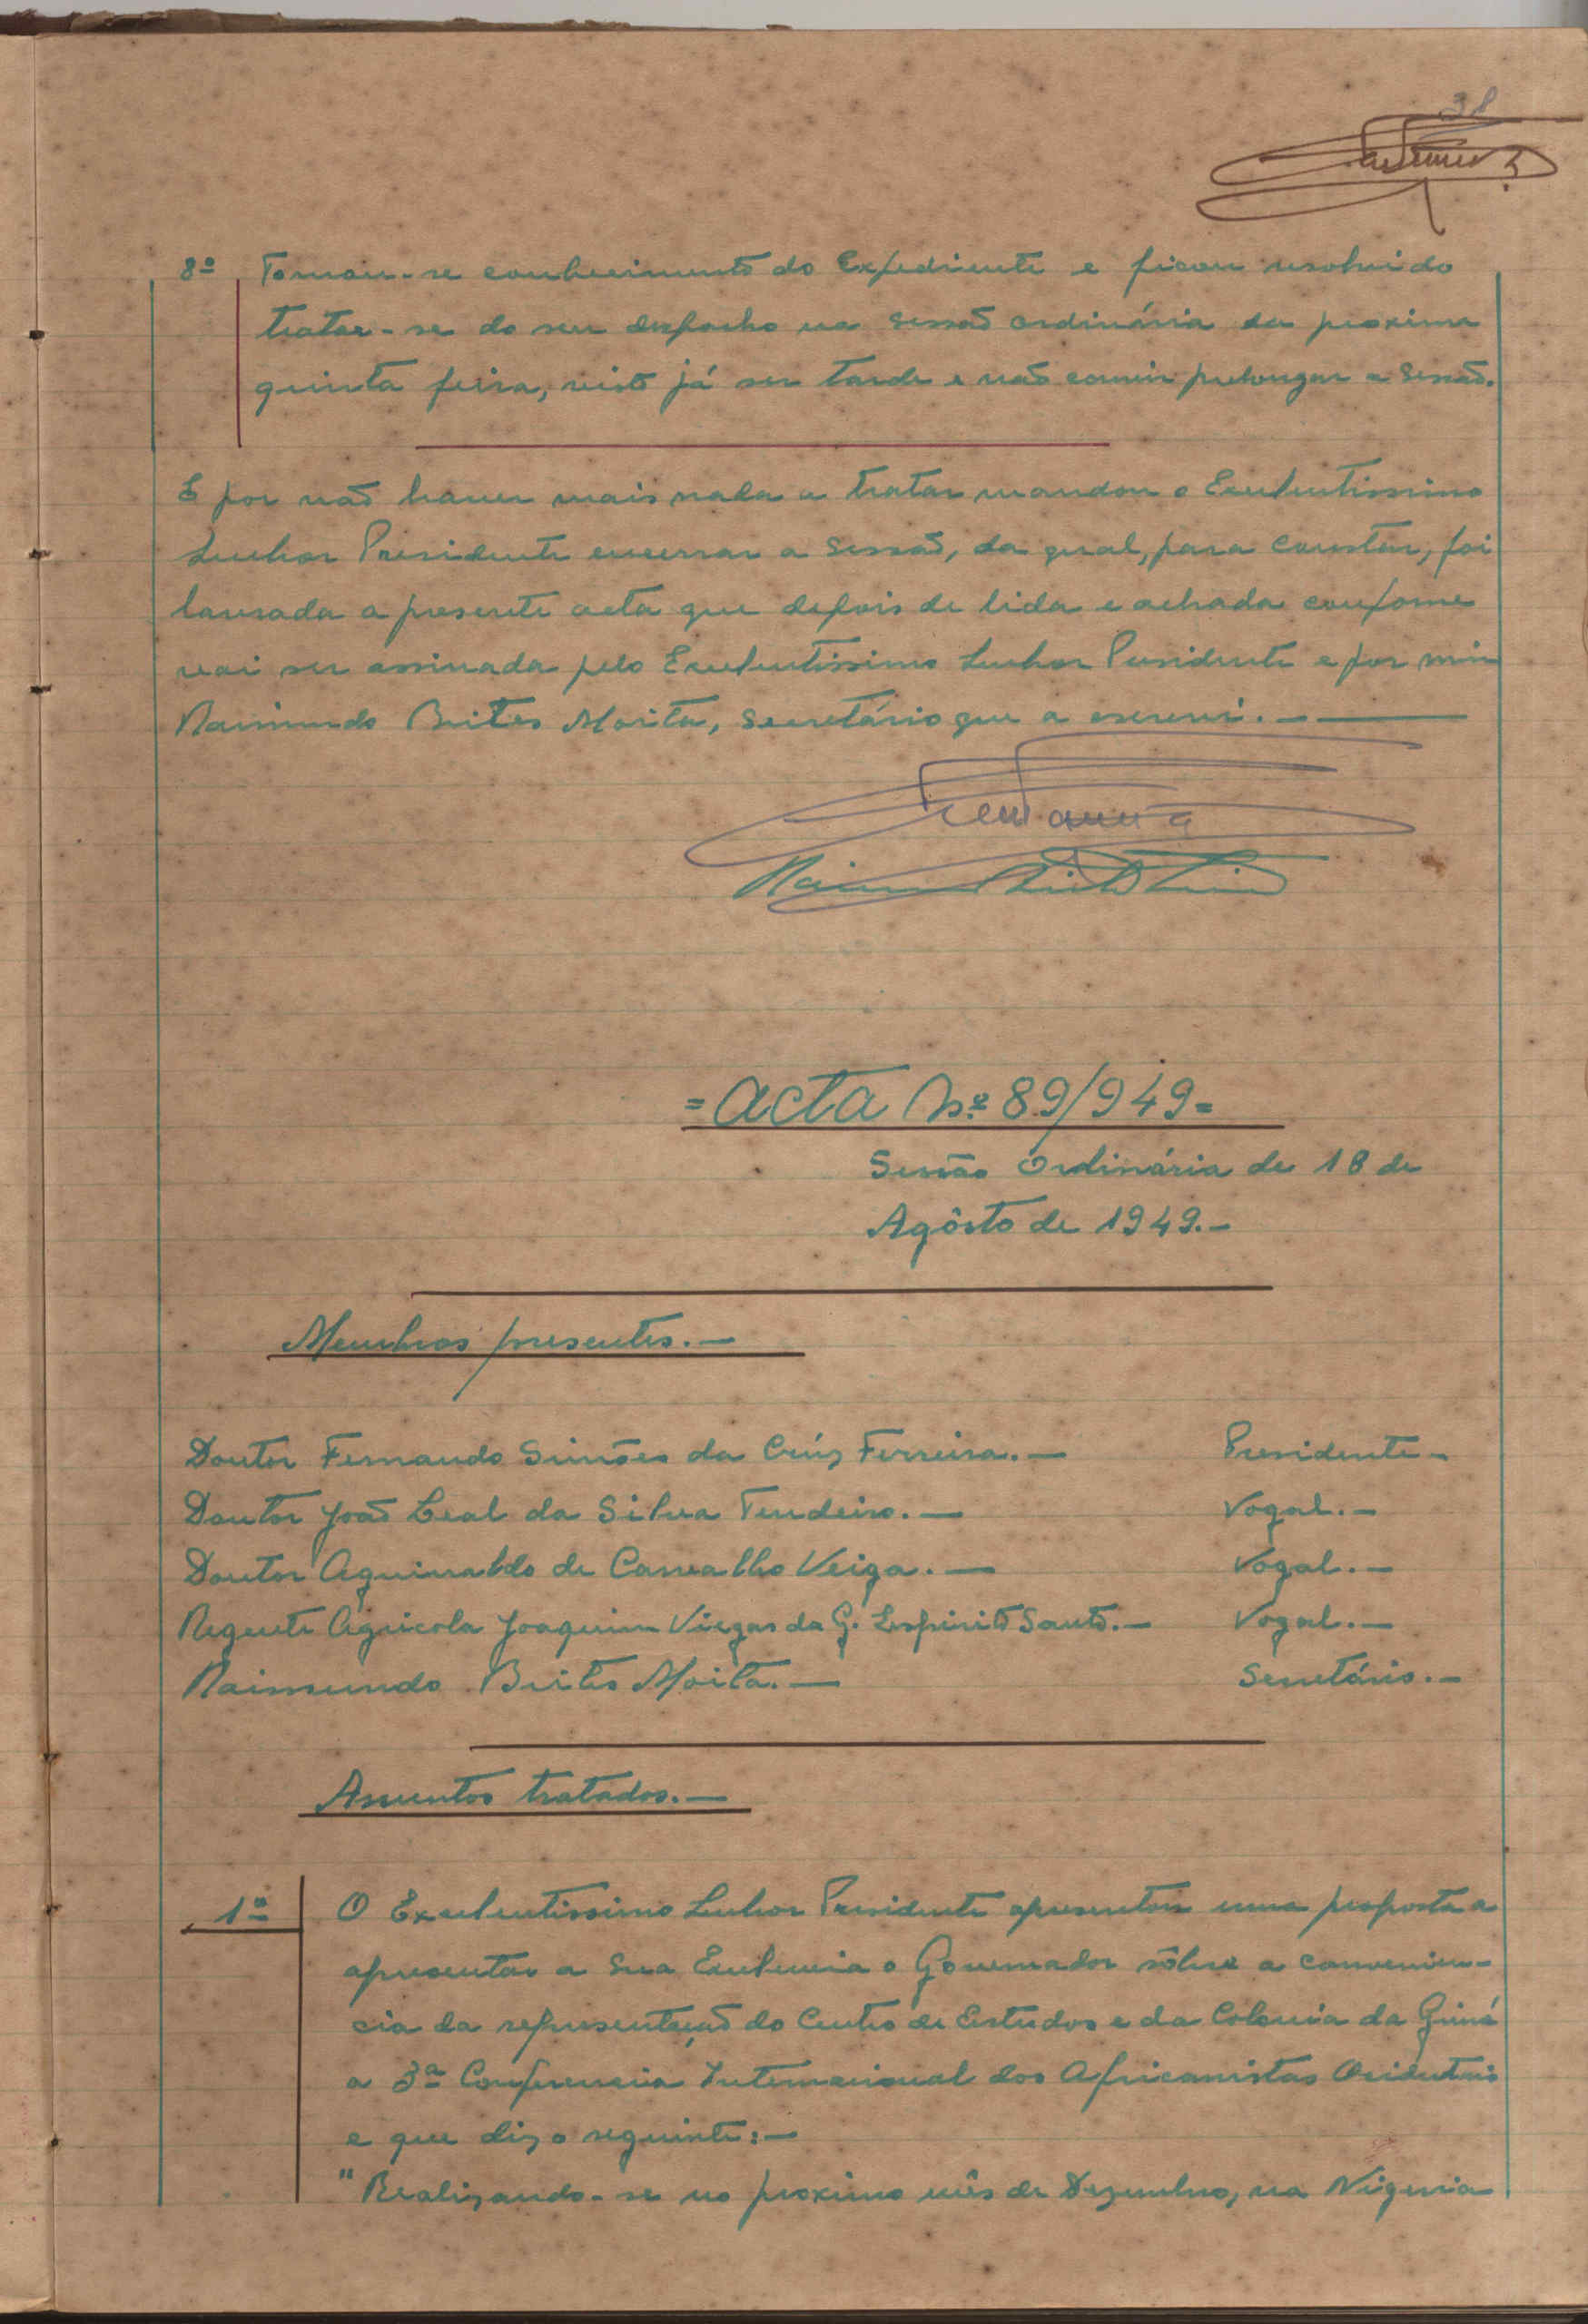 38
8º Tomou-se conhecimento do Expediente e ficou resolvido
tratar-se do seu despacho na Sessão ordinária da proxima
quinta feira, visto já ser tarde e não convir prolongar a Sessão.
E por não haver mais nada a tratar mandou o Excelentissimo
Senhor Presidente encerrar a Sessão, da qual, para constar, foi
lavrada a presente acta que depois de lida e achada conforme
vai ser assinada pelo Excelentissimo Senhor Presidente e por mim
Raimundo Brites Moita, Secretário que a escrevi.-
=Acta Nº 89/949=
Sessão Ordinária de 18 de
Agôsto de 1949.-
Membros presentes.-
Doutor Fernando Simões da Crúz Ferreira.- Presidente-
Doutor João Leal da Silva Tendeiro.- Vogal.-
Doutor Aguinaldo de Carvalho Veiga.- Vogal.-
Regente Agricola Joaquim Viegas da G. Espirito Santo.- Vogal.-
Raimundo Brites Moita.- Secretário.-
Assuntos tratados.-
1º O Excelentissimo Senhor Presidente apresentou uma proposta a
apresentar a Sua Excelencia o Governador sôbre a convenien-
cia da representação do Centro de Estudos e da Colonia da Guiné
a 3ª Conferencia Internacional dos Africanistas Ocidentais
e que diz o seguinte:-
"Realizando-se no proximo mês de Dezembro, na Nigeria